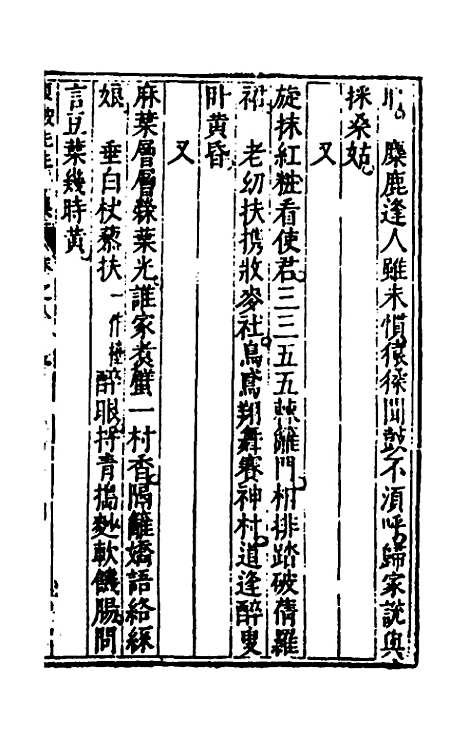 麋鹿逢人雖未慣猿猱聞鼓不須呼歸家說與
採桑姑
又
旋抹紅粧看使君三三五五棘籬門相排踏破蒨羅
裙　老幼扶携收麥社烏鳶翔舞賽神村道逢醉叟
卧黃昏
又
麻葉層層檾葉光誰家煑蠒一村香隔籬嬌語絡絲
娘　垂白杖藜扶一作擡醉眼捋青搗麨軟饑腸問
言豆葉幾時黃